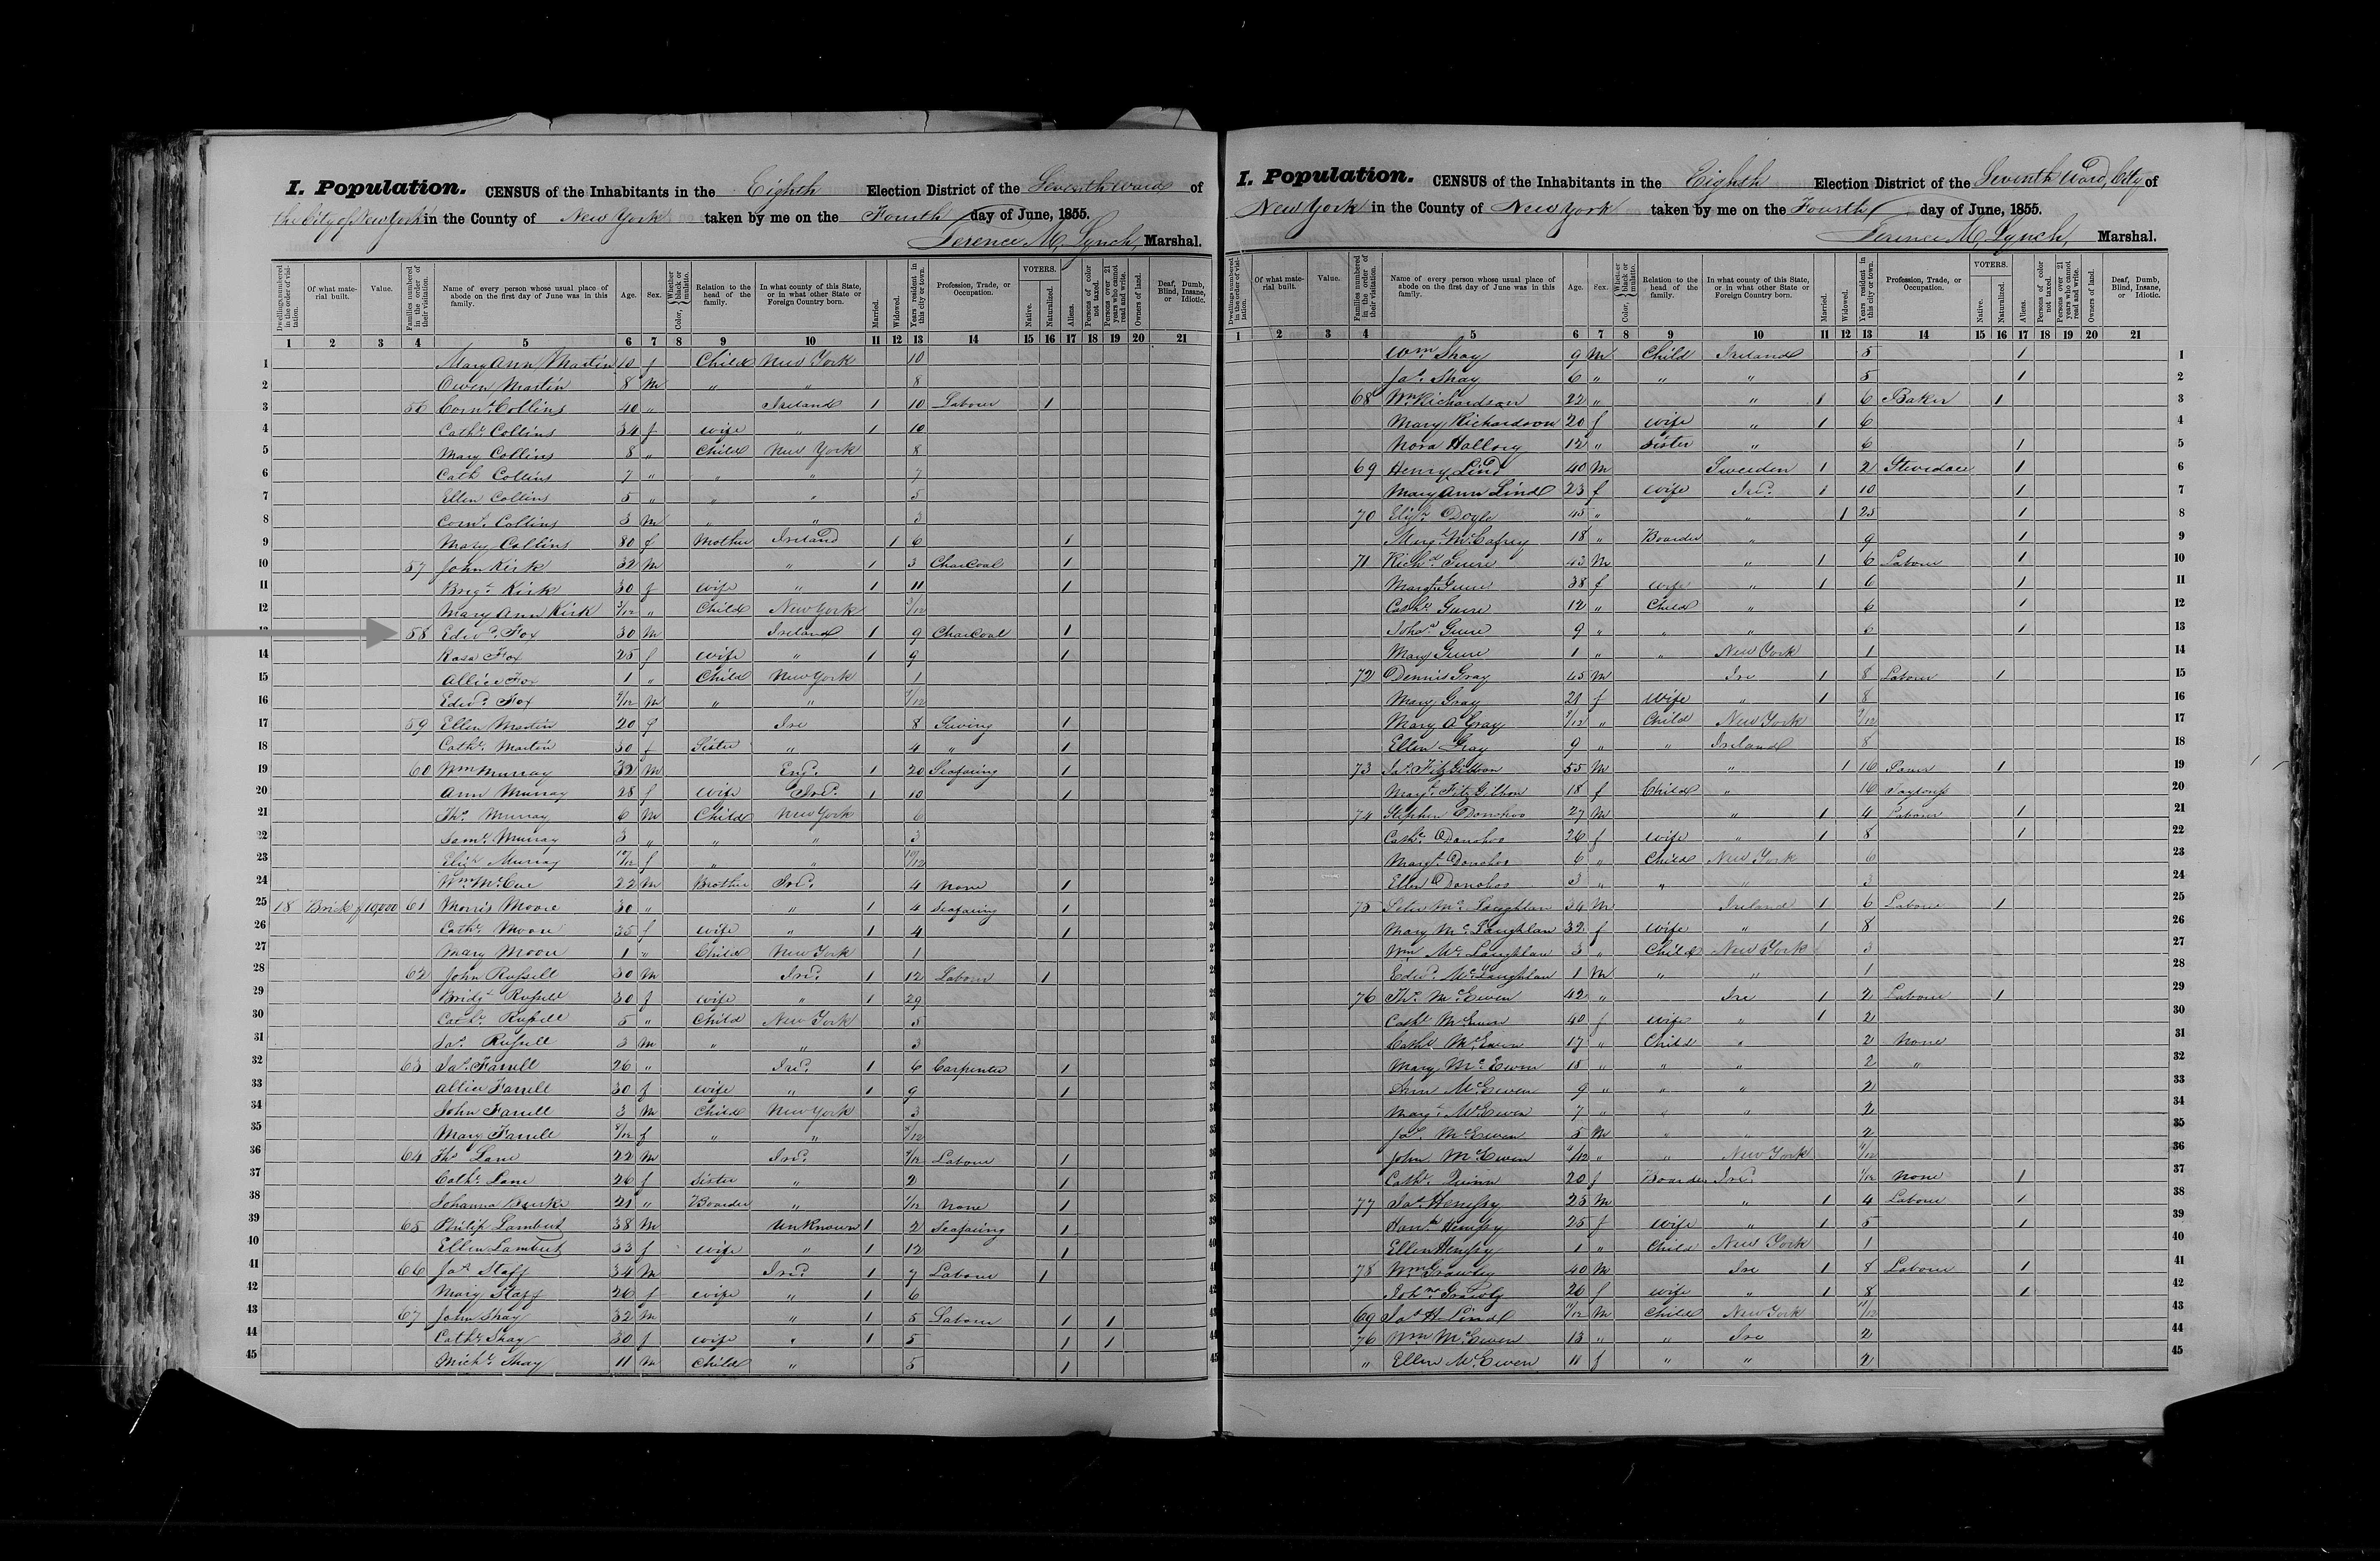 I. Population. CENSUS of the Inhabitants in the Eighth Election District of the Seventh Ward of
the City of New York in the County of New York taken by me on the Fourth day of June, 1855.
Terence M. Lynch, Marshal.
Dwellings numbered in the order of visitation. Of what material built. Value. Families numbered in the order of their visitation. Name of every person whose usual place of abode on the first day of June was in this family. Age. Sex. Color, Whether black or mulatto. Relation to the head of the family. In what county of this State, or in what other State or Foreign Country born. Married. Widowed. Years resident in this city or town. Profession, Trade, or Occupation. VOTERS. Native. Naturalized. Aliens. Persons of color not taxed. Persons over 21 years who cannot read and write. Owners of land. Deaf, Dumb, Blind, Insane, or Idiotic.
1 2 3 4 5 6 7 8 9 10 11 12 13 14 15 16 17 18 19 20 21
1 Mary Ann Martin 10 f Child New York 10
2 Owen Martin 8 M " " 8
3 56 Corns. Collins 40 " Ireland 1 10 Labour 1
4 Cathe. Collins 34 f wife " 1 10
5 Mary Collins 8 " Child New York 8
6 Cath Collins 7 " " " 7
7 Ellen Collins 5 " " " 5
8 Corns. Collins 3 M " " 3
9 Mary Collins 80 f Mother Ireland 1 6 1
10 57 John Kirk 32 M " 1 3 CharCoal 1
11 Brigt. Kirk 30 f wife " 1 11 1
12 Mary Ann Kirk 3/12 " Child New York 3/12
58 Edwd. Fox 30 M Ireland 1 9 CharCoal 1
14 Rosa Fox 25 f wife " 1 9 1
15 Allice Fox 1 " Child New York 1
16 Edwd. Fox 7/12 M " " 7/12
17 59 Ellen Martin 20 f Ire 8 Sewing 1
18 Cathe. Martin 30 f Sister " 4 " 1
19 60 Wm Murray 32 M Engd. 1 20 Seafaring 1
20 Ann Murray 28 f wife Ired. 1 10 1
21 Ths. Murray 6 M Child New York 6
22 Saml. Murray 3 " " " 3
23 Elizh. Murray 10/12 f " " 10/12
24 Wm McCue 22 M Brother Ired. 4 none 1
25 18 Brick $10,000 61 Morris Moore 30 " " 1 4 Seafaring 1
26 Cathe. Moore 35 f wife " 1 4 1
27 Mary Moore 1 " Child New York 1
28 62 John Russell 30 M Ired. 1 12 Labour 1
29 Bridgt. Russell 30 f wife " 1 29
30 Cathe. Russell 5 " Child New York 5
31 Jas. Russell 3 M " " 3
32 63 Jas. Farrell 26 " Ired. 1 6 Carpenter 1
33 Allice Farrell 30 f wife " 1 9 1
34 John Farrell 3 M Child New York 3
35 Mary Farrell 8/12 f " " 8/12
36 64 Ths Lane 22 M Ired. Labour 1
37 Cathe. Lane 26 f Sister " 2 1
38 Johanna Burke 21 " Boarder " none 1
39 65 Philip Lambert 38 M Unknown 1 2 Seafaring 1
40 Ellen Lambert 33 f wife " 1 12 1
41 66 Jas. Staff 34 M Ired. 1 7 Labour 1
42 Mary Staff 26 f wife " 1 6
43 67 John Shay 32 M " 1 5 Labour 1 1
44 Cathe. Shay 30 f wife " 1 5 1 1
45 Michl. Shay 11 M Child " 5 1
I. Population. CENSUS of the Inhabitants in the Eighth Election District of the Seventh Ward, City of
New York in the County of New York taken by me on the Fourth day of June, 1855.
Terence M. Lynch, Marshal.
Dwellings numbered in the order of visitation. Of what material built. Value. Families numbered in the order of their visitation. Name of every person whose usual place of abode on the first day of June was in this family. Age. Sex. Color, Whether black or mulatto. Relation to the head of the family. In what county of this State, or in what other State or Foreign Country born. Married. Widowed. Years resident in this city or town. Profession, Trade, or Occupation. VOTERS. Native. Naturalized. Aliens. Persons of color not taxed. Persons over 21 years who cannot read and write. Owners of land. Deaf, Dumb, Blind, Insane, or Idiotic.
1 2 3 4 5 6 7 8 9 10 11 12 13 14 15 16 17 18 19 20 21
Wm Shay 9 M Child Ireland 5 1 1
Jas. Shay 6 " " " 5 1 2
68 Wm Richardson 22 " " 1 6 Baker 1 3
Mary Richardson 20 f wife " 1 6 4
Nora Hallory 12 " Sister " 6 1 5
69 Henry Lind 40 M Sweeden 1 2 Stevedore 1 6
Mary Ann Lind 23 f wife Ired. 1 10 1 7
70 Elizh. Doyle 45 " " 1 25 1 8
Margt. McCafrey 18 " Boarder " 9 1 9
71 Richd Guire 43 M " 1 6 Labour 1 10
Margt. Guire 38 f wife " 1 6 1 11
Cathe. Guire 12 " Child " 6 1 12
Joha. Guire 9 " " " 6 1 13
Mary Guire 1 " " New York 1 14
72 Dennis Gray 45 M Ire 1 8 Labour 1 15
Mary Gray 21 f Wife " 1 8 16
Mary A Gray 9/12 " Child New York 9/12 17
Ellen Gray 9 " " Ireland 8 18
73 Jas. FitzGibbon 55 M " 1 16 Paver 1 19
Margt. FitzGibbon 18 f Child " 16 20
74 Stephen Donohoo 27 M " 1 4 Labour 1 21
Cathe. Donohoo 26 f wife " 1 8 1 22
Margt. Donohoo 6 " Child New York 6 23
Ellen Donohoo 3 " " " 3 24
75 Peter McLaughlan 34 M Ireland 1 6 Labour 1 25
Mary McLaughlan 32 f wife " 1 8 26
Wm McLaughlan 3 " Child New York 3 27
Edwd. McLaughlan 1 M " " 1 28
76 Ths. McEwen 42 " Ire 1 2 Labour 1 29
Cathe McEwen 40 f wife " 1 2 30
Cathe McEwen 17 " Child " 2 none 31
Mary McEwen 15 " " " 2 " 32
Ann McEwen 9 " " " 2 33
Margt. McEwen 7 " " " 2 34
Jas. McEwen 5 M " " 2 35
John McEwen " " New York 36
Cathe. Quinn 20 f Boarder Ired. none 1 37
77 Jas. Hempsy 25 M " 1 4 Labour 1 38
Hanh. Hempsy 25 f wife " 1 5 1 39
Ellen Hempsy 1 " Child New York 1 40
78 Wm 40 M Ire 1 8 Labour 1 41
26 f wife " 1 8 1 42
69 Jas H Lind 11/12 M Child New York 11/12 43
76 Wm McEwen 13 " " Ire 2 44
" Ellen McEwen 11 f " " 2 45